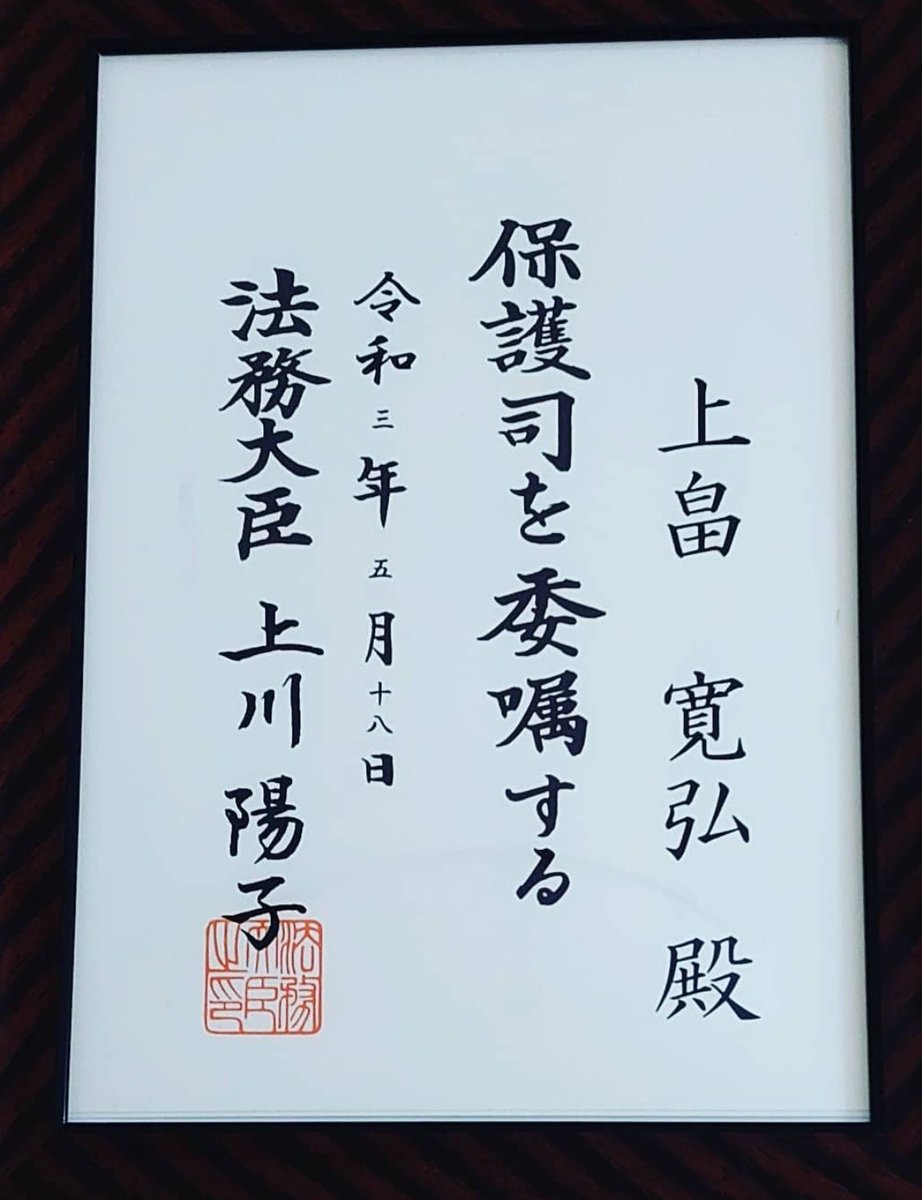 上畠 寛弘 殿
保護司を委嘱する
令和三年五月十八日
法務大臣 上川 陽子
法務大臣之印